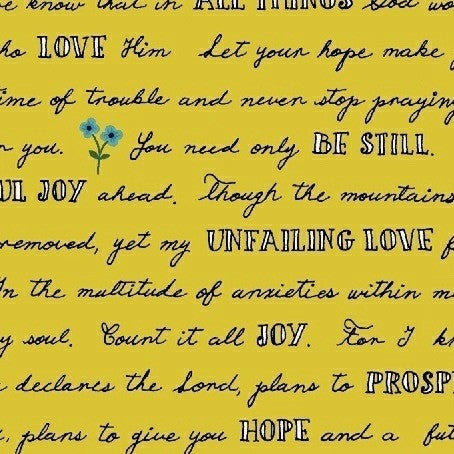 know that in ALL THINGS God
LOVE Him Let your hope make
time of trouble and never stop praying
you. You need only BE STILL.
JOY ahead. Though the mountains
removed, yet my UNFAILING LOVE
In the multitude of anxieties within
soul. Count it all JOY. For I
declares the Lord, plans to
plans to give you HOPE and a